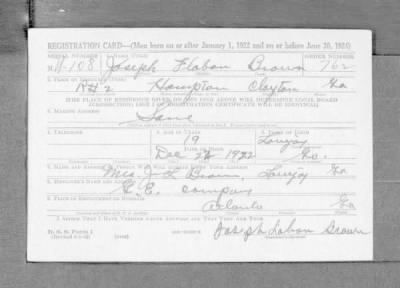 REGISTRATION CARD—(Men born on or after January 1, 1922 and on or before June 30, 1924)
SERIAL NUMBER 1. NAME (Print) ORDER NUMBER
N-108 Joseph Flabon Brown 762
2. PLACE OF RESIDENCE (Print)
R#2 Hampton Clayton Ga
[THE PLACE OF RESIDENCE GIVEN ON THE LINE ABOVE WILL DETERMINE LOCAL BOARD
JURISDICTION; LINE 2 OF REGISTRATION CERTIFICATE WILL BE IDENTICAL]
3. MAILING ADDRESS
Same
4. TELEPHONE 5. AGE IN YEARS 6. PLACE OF BIRTH
19 Lovejoy
DATE OF BIRTH
Dec 26 1922 Ga.
7. NAME AND ADDRESS OF PERSON WHO WILL ALWAYS KNOW YOUR ADDRESS
Mrs J L Brown, Lovejoy Ga
8. EMPLOYER'S NAME AND ADDRESS
G. E. company
9. PLACE OF EMPLOYMENT OR BUSINESS
Atlanta Ga
I AFFIRM THAT I HAVE VERIFIED ABOVE ANSWERS AND THAT THEY ARE TRUE.
D. S. S. Form 1
Joseph Labon Brown